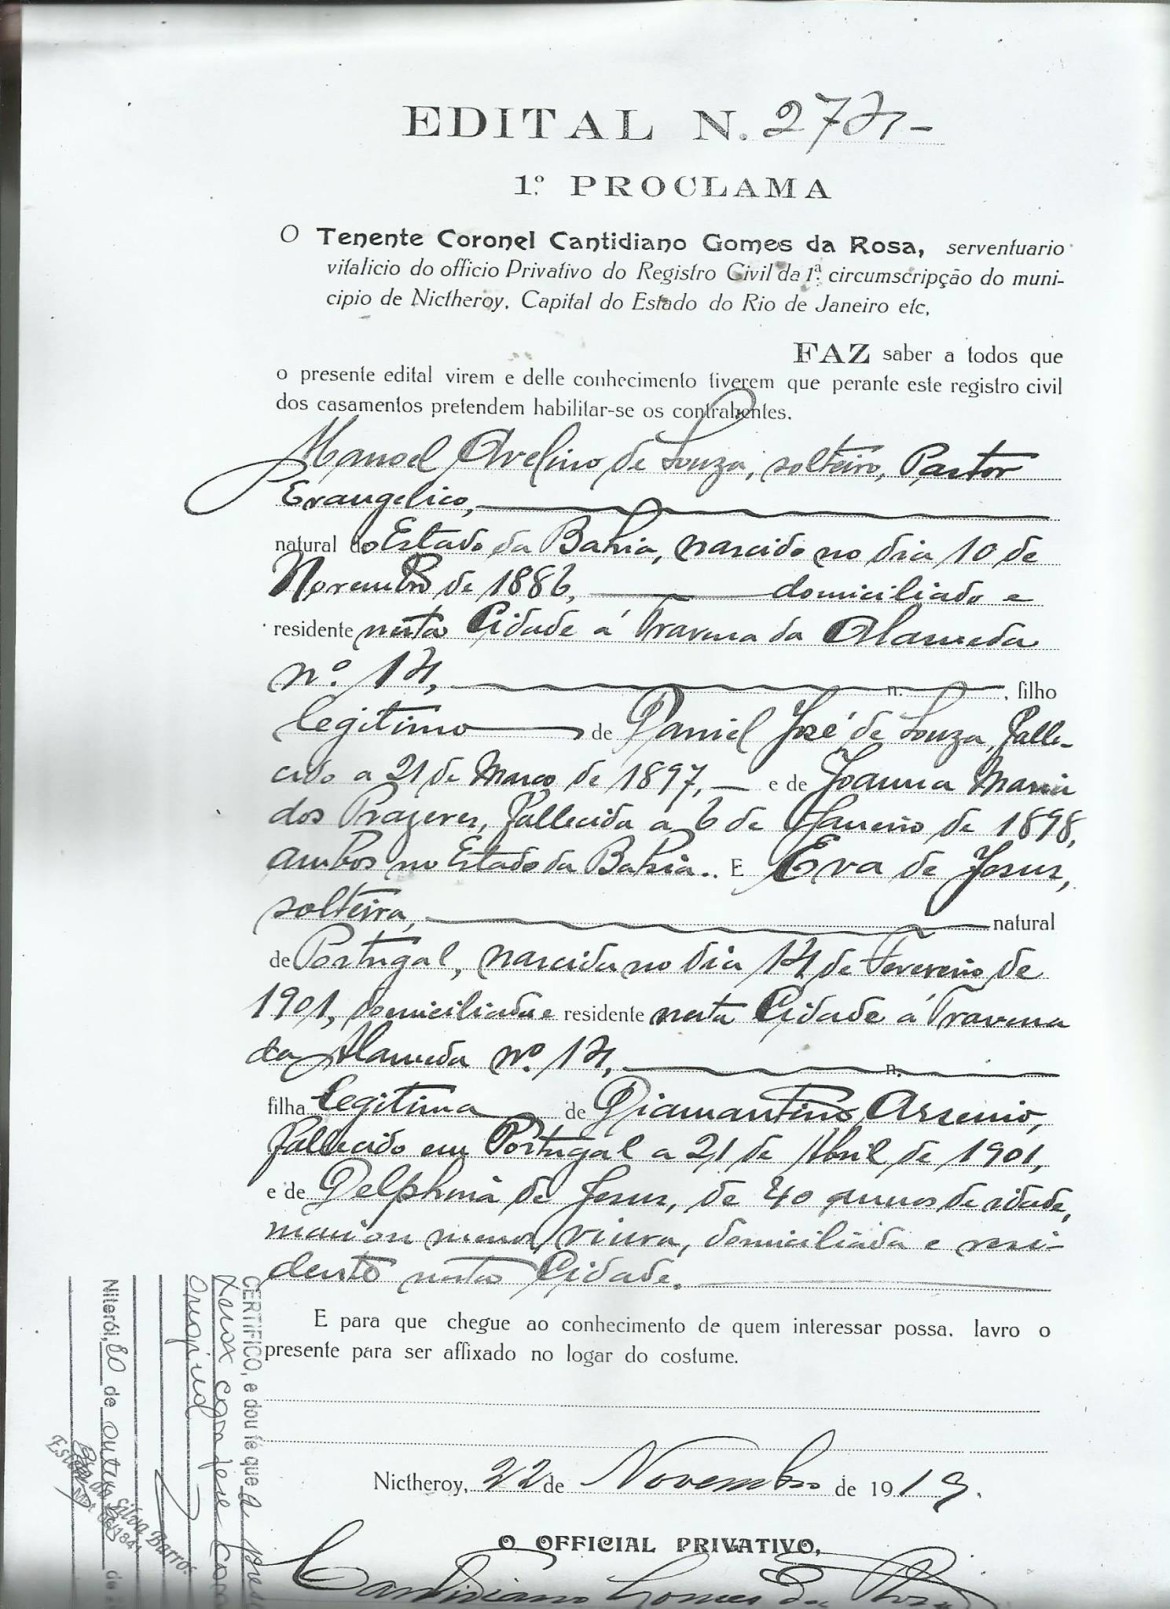 EDITAL N. 2771-
1º PROCLAMA
O Tenente Coronel Cantidiano Gomes da Rosa, serventuario
vitalicio do officio Privativo do Registro Civil da 1ª circumscripção do muni-
cipio de Nictheroy, Capital do Estado do Rio de Janeiro etc,
FAZ saber a todos que
o presente edital virem e delle conhecimento tiverem que perante este registro civil
dos casamentos pretendem habilitar-se os contrahentes.
Manoel Avelino de Souza, solteiro, Pastor
Evangelico,
natural do Estado da Bahia, nascido no dia 10 de
Novembro de 1886, domiciliado e
residente nesta Cidade á Travessa da Alameda
nº. 14, n. , filho
legitimo de Daniel José de Souza, falle-
cido a 21 de Março de 1897, e de Joanna Maria
dos Prazeres, fallecida a 6 de Janeiro de 1898,
ambos no Estado da Bahia.. E Eva de Jesus,
solteira, natural
de Portugal, nascida no dia 14 de Fevereiro de
1901, domiciliada e residente nesta Cidade á Travessa
da Alameda nº. 14, n.
filha legitima de Diamantino Assenio,
fallecido em Portugal a 21 de Abril de 1901,
e de Delphina de Jesus, de 40 annos de idade,
mais ou menos, viuva, domiciliada e resi-
dente nesta Cidade.
E para que chegue ao conhecimento de quem interessar possa, lavro o
presente para ser affixado no logar do costume.
Nictheroy, 22 de Novembro de 1919.
O OFFICIAL PRIVATIVO,
Cantidiano Gomes da Rosa
CERTIFICO, e dou fé que a
Xerox confere com
original
Niterói, 20 de outubro de
Silva Barros